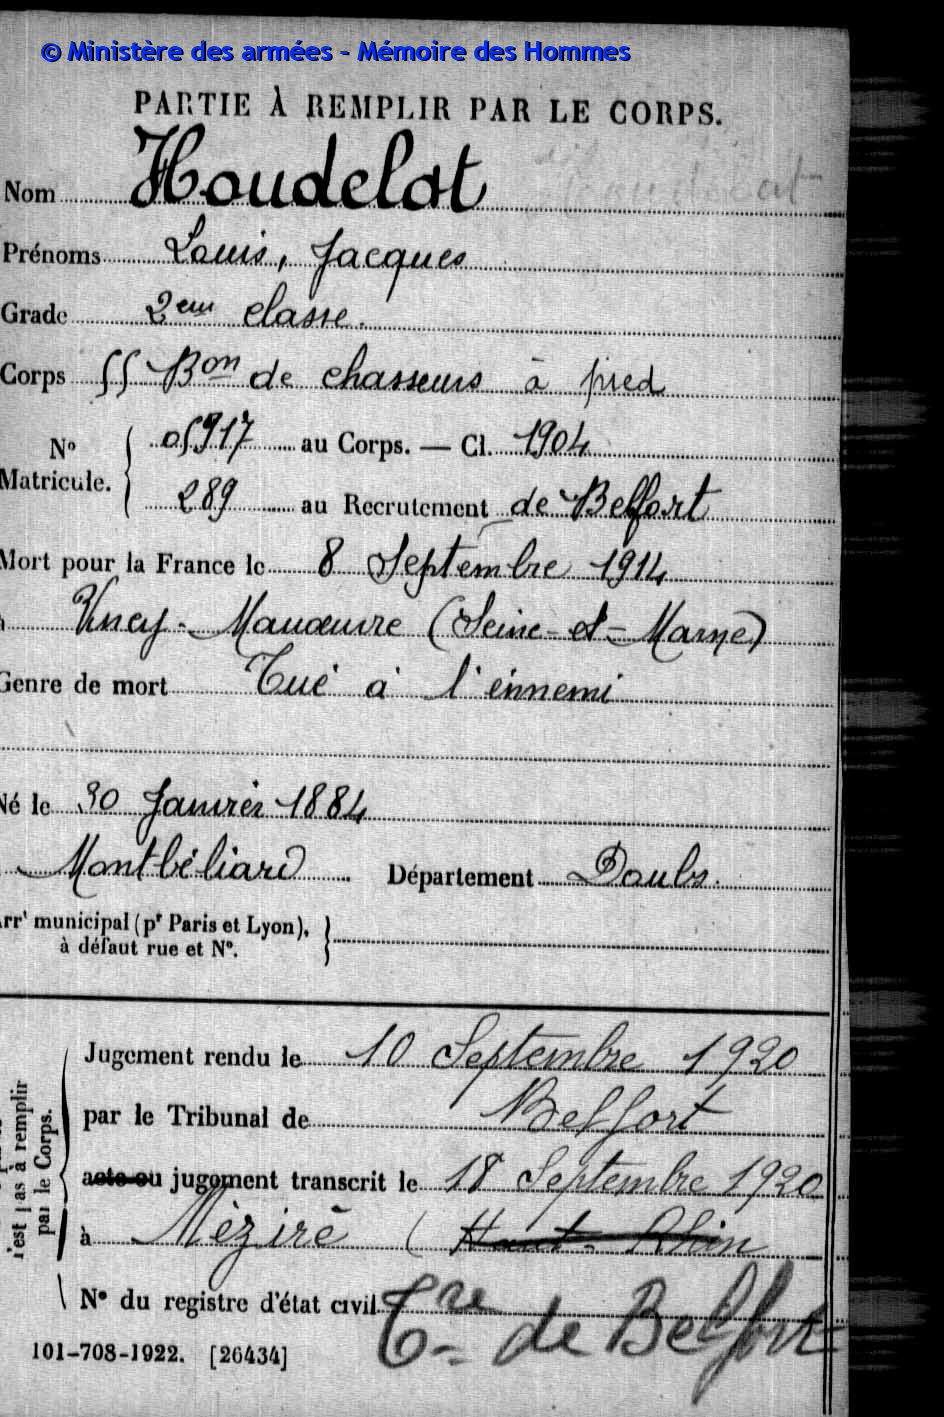 © Ministère des armées - Mémoire des Hommes
PARTIE À REMPLIR PAR LE CORPS.
Nom Houdelat
Prénoms Louis, Jacques
Grade 2eme classe.
Corps 55 Bon de chasseurs à pied
No Matricule. { 05917 au Corps. — Cl. 1904
289 au Recrutement de Belfort
Mort pour la France le 8 Septembre 1914
Vincy-Manœuvre (Seine-et-Marne)
Genre de mort Tué à l'ennemi
Né le 30 Janvier 1884
Montbéliard Département Doubs.
Arrt municipal (pr Paris et Lyon), }
à défaut rue et No.
n'est pas à remplir
par le Corps.
Jugement rendu le 10 Septembre 1920
par le Tribunal de Belfort
acte ou jugement transcrit le 18 Septembre 1920
à Méziré (Haut-Rhin
No du registre d'état civil
Tre de Belfort
101-708-1922. [26434]